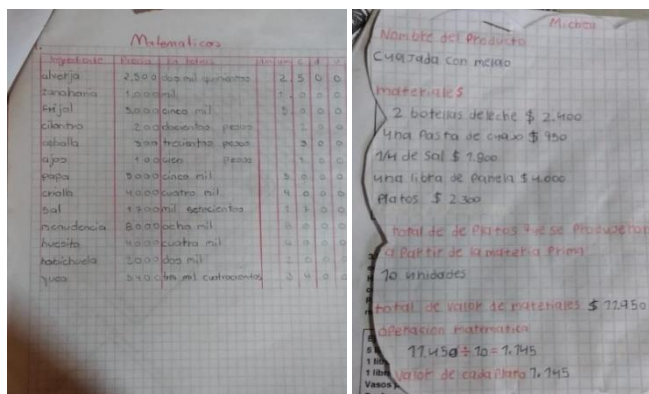 Matematicas
Ingrediente Precio en letras um c d u
alverja 2,500 dos mil quinientos 2 5 0 0
zanahoria 1,000 mil 1 0 0 0
Frijol 5000 cinco mil 5 0 0 0
cilantro 200 doscientos pesos 2 0 0
cebolla 300 trescientos pesos 3 0 0
ajos 100 cien pesos 1 0 0
papa 5000 cinco mil 5 0 0 0
criolla 4000 cuatro mil 4 0 0 0
sal 1700 mil setecientos 1 7 0 0
menudencia 8000 ocho mil 8 0 0 0
huesito 4000 cuatro mil 4 0 0 0
habichuela 2000 dos mil 2 0 0 0
yuca 3400 tres mil cuatrocientos 3 4 0 0
Michel
Nombre del Producto
Cuajada con melao
materiales
2 botellas de leche $ 2.400
una Pasta de cuajo $ 950
1/4 de sal $ 1.800
una libra de Panela $ 4.000
Platos $ 2300
total de de Platos que se Produjeron
a Partir de la materia Prima
10 unidades
total de valor de materiales $ 11950
operacion matematica
11.450 ÷ 10 = 1.145
valor de cada Plato 1.145
1 lib
1 libr
Vasos